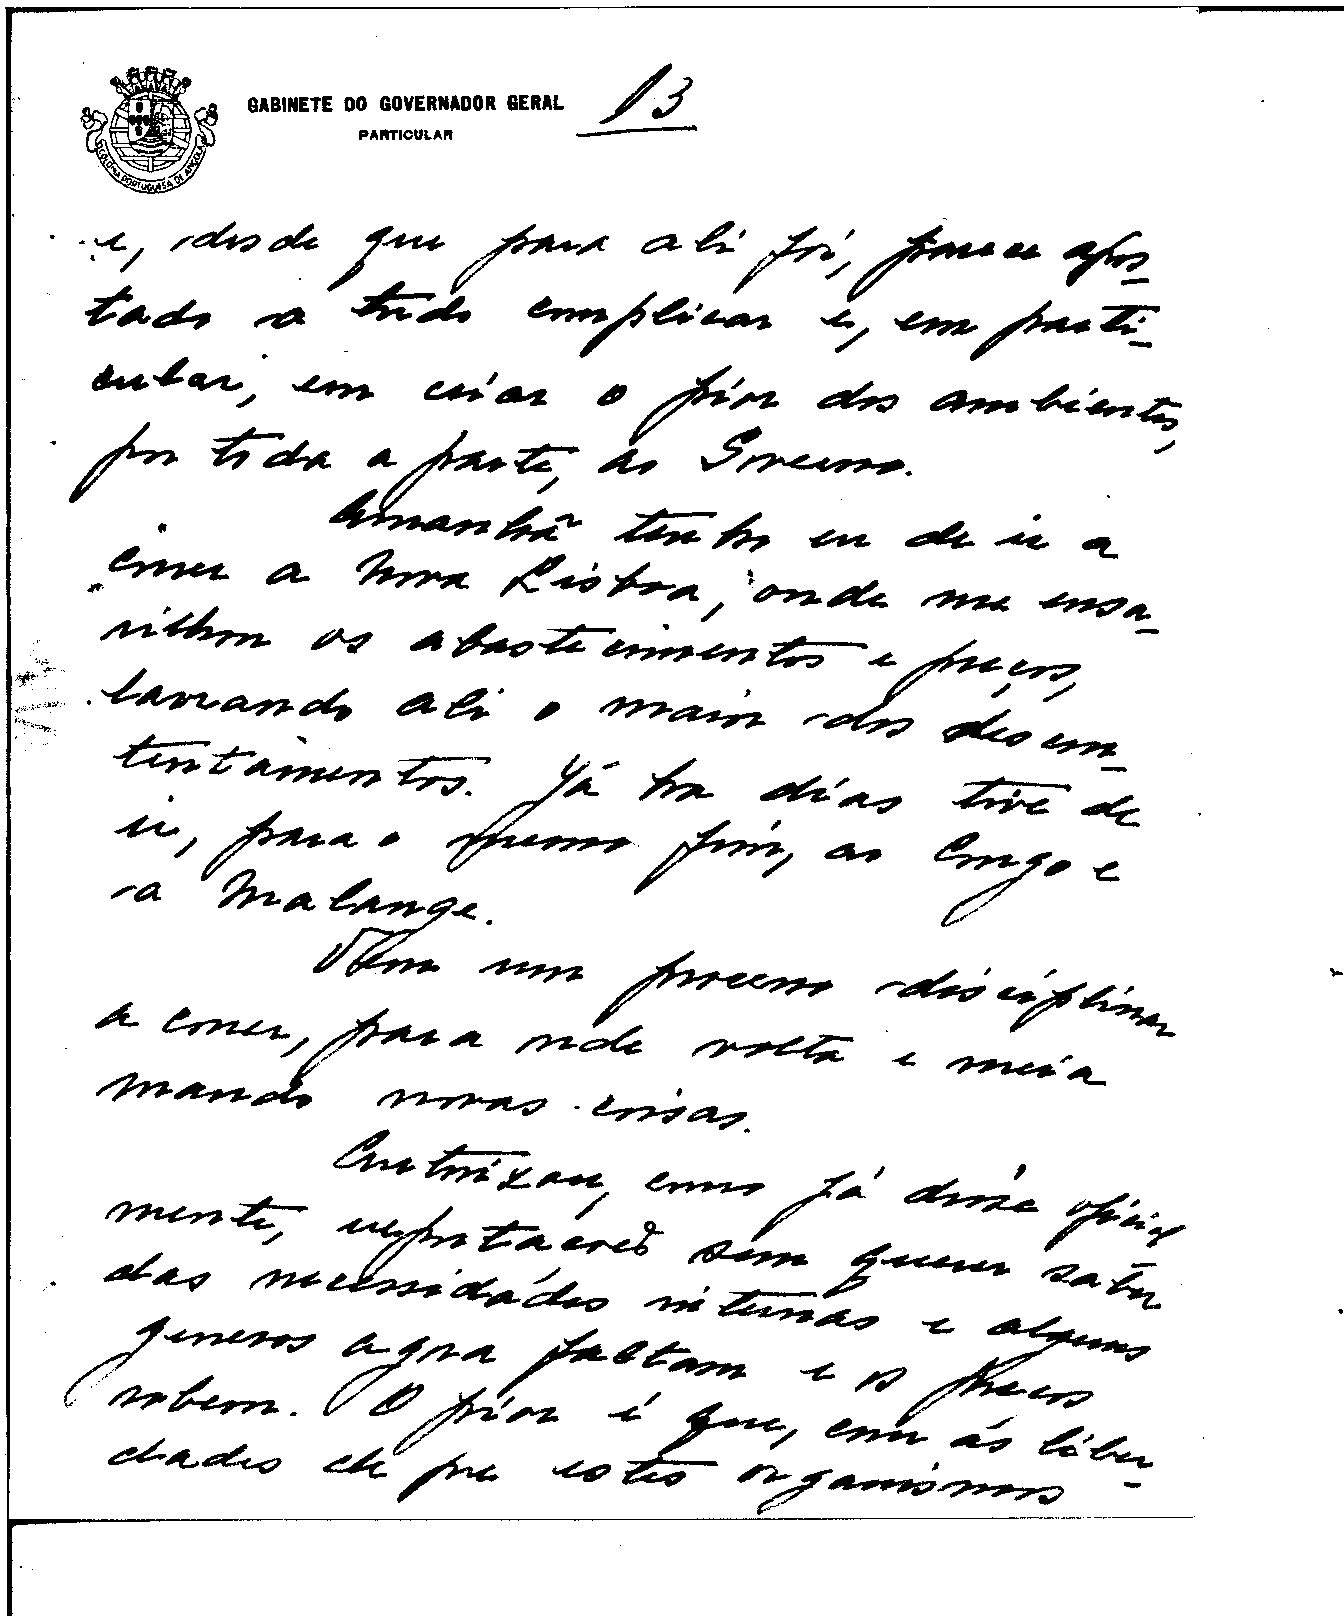 GABINETE DO GOVERNADOR GERAL
PARTICULAR
13
COLONIA PORTUGUESA DE ANGOLA
e, desde que para ali foi, parece apos-
tado a tudo complicar e, em parti-
cular, em criar o pior dos ambientes,
por toda a parte, ao Governo.
Amanhã tenho eu de ir a
correr a Nova Lisboa, onde me ensa-
rilhou os abastecimentos e preços,
lavrando ali o maior dos descon-
tentamentos. Já ha dias tive de
ir, para o mesmo fim, ao Congo e
a Malange.
Tem um processo disciplinar
a correr, para onde volta e meia
mando novas coisas.
Autorizou, como já disse oficial
mente, exportações sem querer saber
das necessidades internas e alguns
generos agora faltam e os preços
sobem. O pior é que, com as liber-
dades de que estes organismos